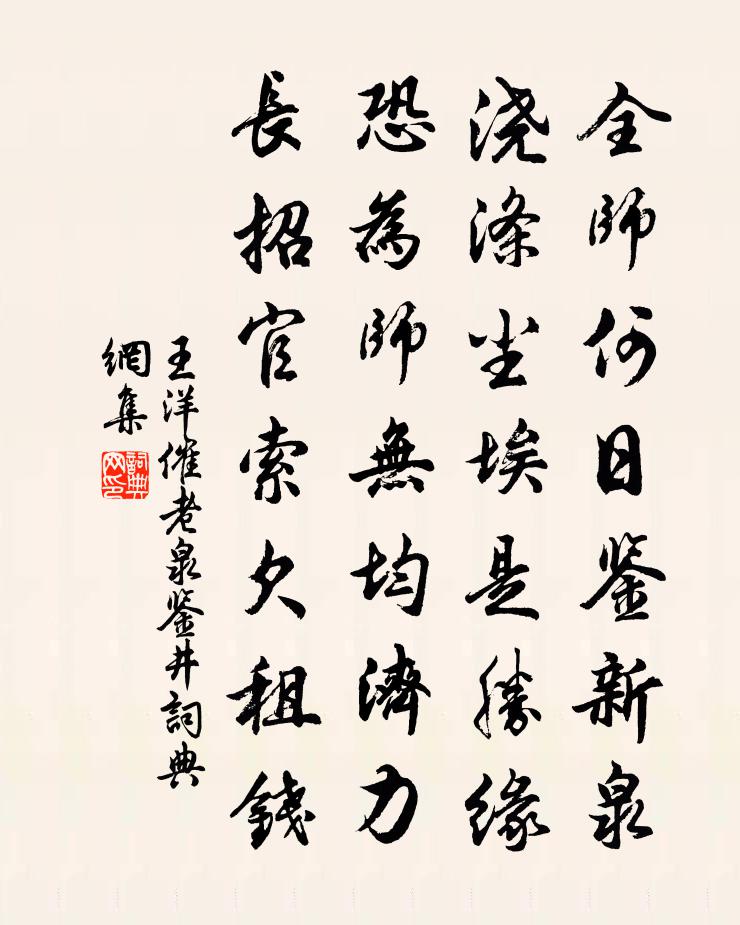 全師何日鉴新泉
浇滌尘埃是勝緣
恐為師無均濟力
長招官索欠租錢
王洋催老泉鉴井詞典
網集
詞典网印